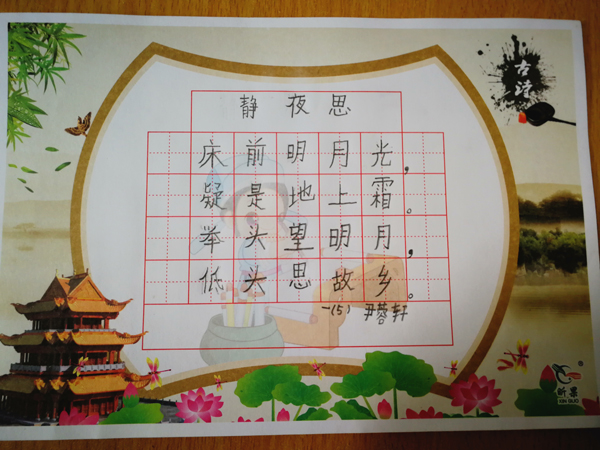 古诗
静夜思
床前明月光，
疑是地上霜。
举头望明月，
低头思故乡。
一(5) 尹蓉轩
昕果
XIN GUO